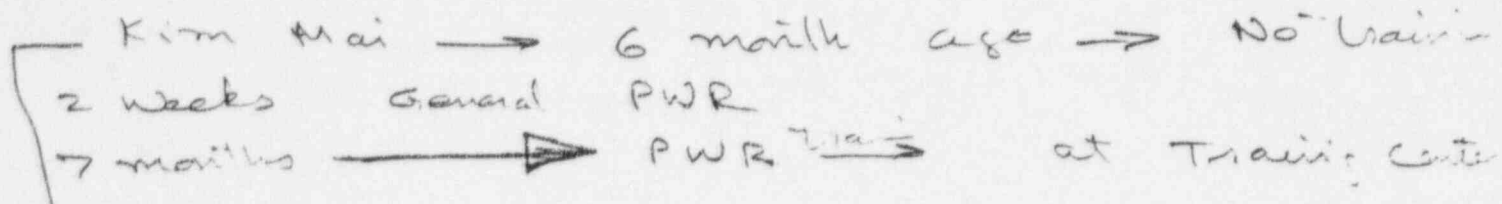 Kim Mai → 6 month ago → No Trainin
2 weeks General PWR
7 months → PWR Train → at Training Cente